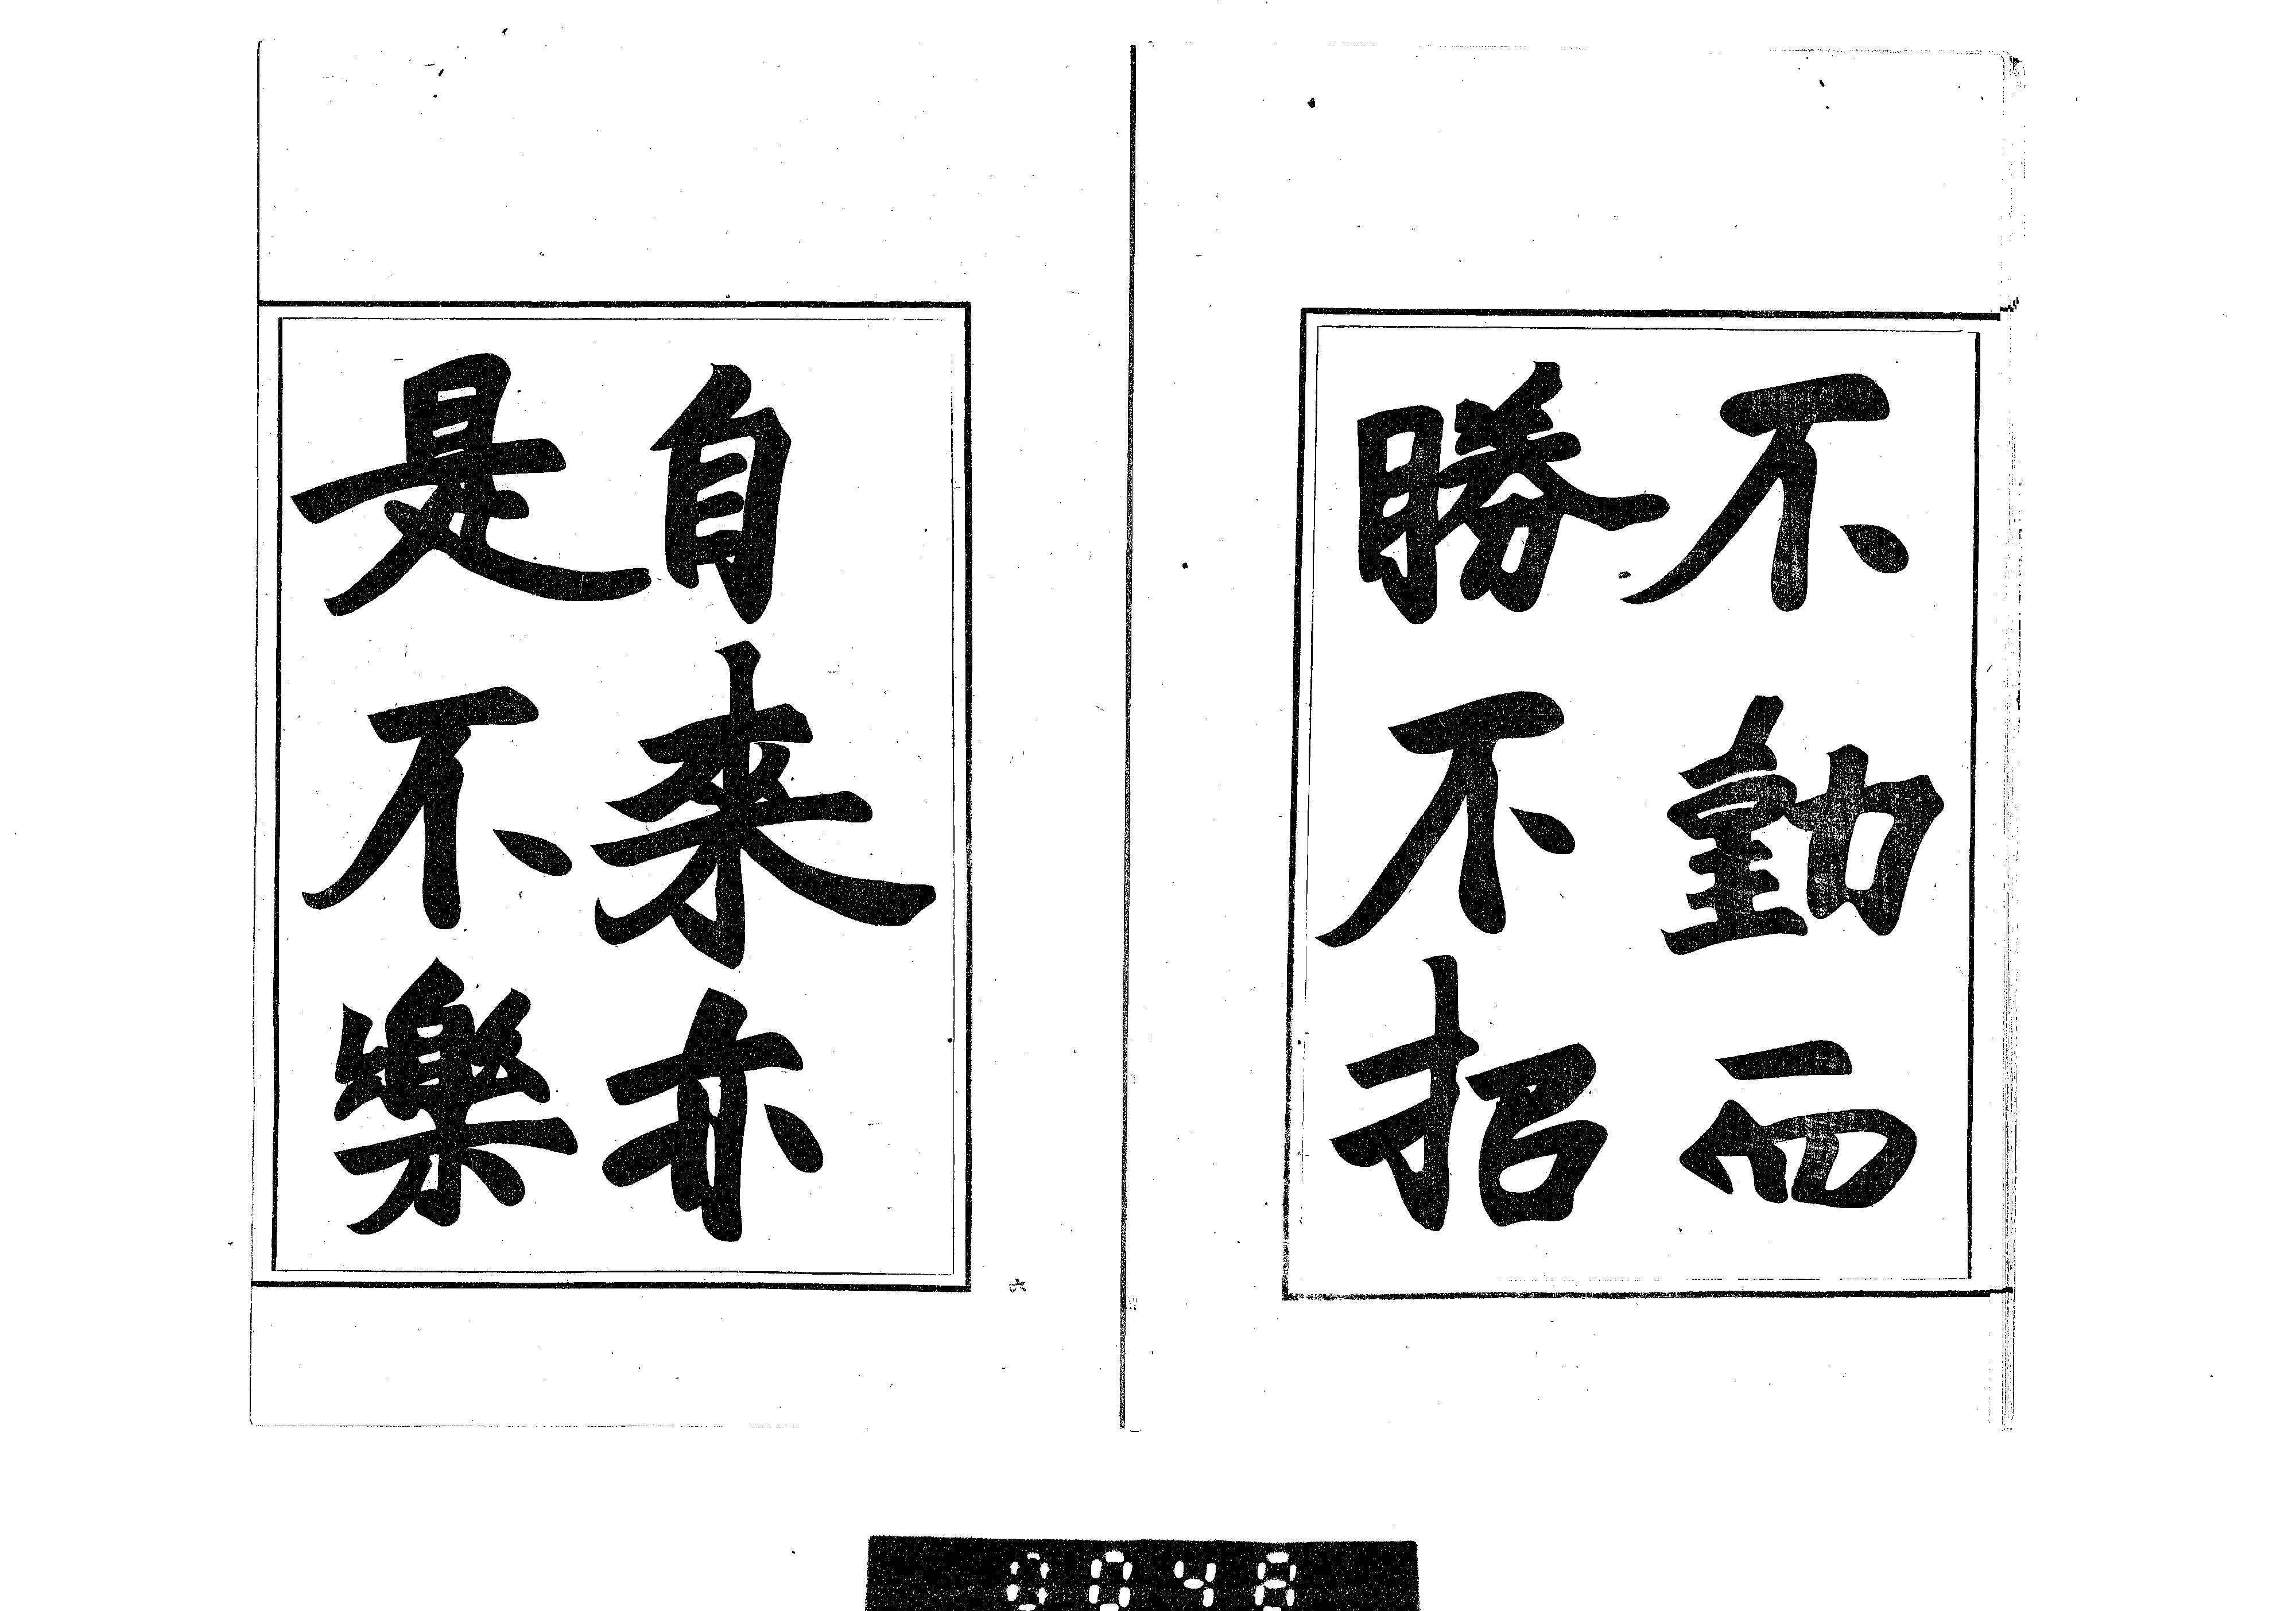 不動而
勝不招
自来亦
是不樂
六